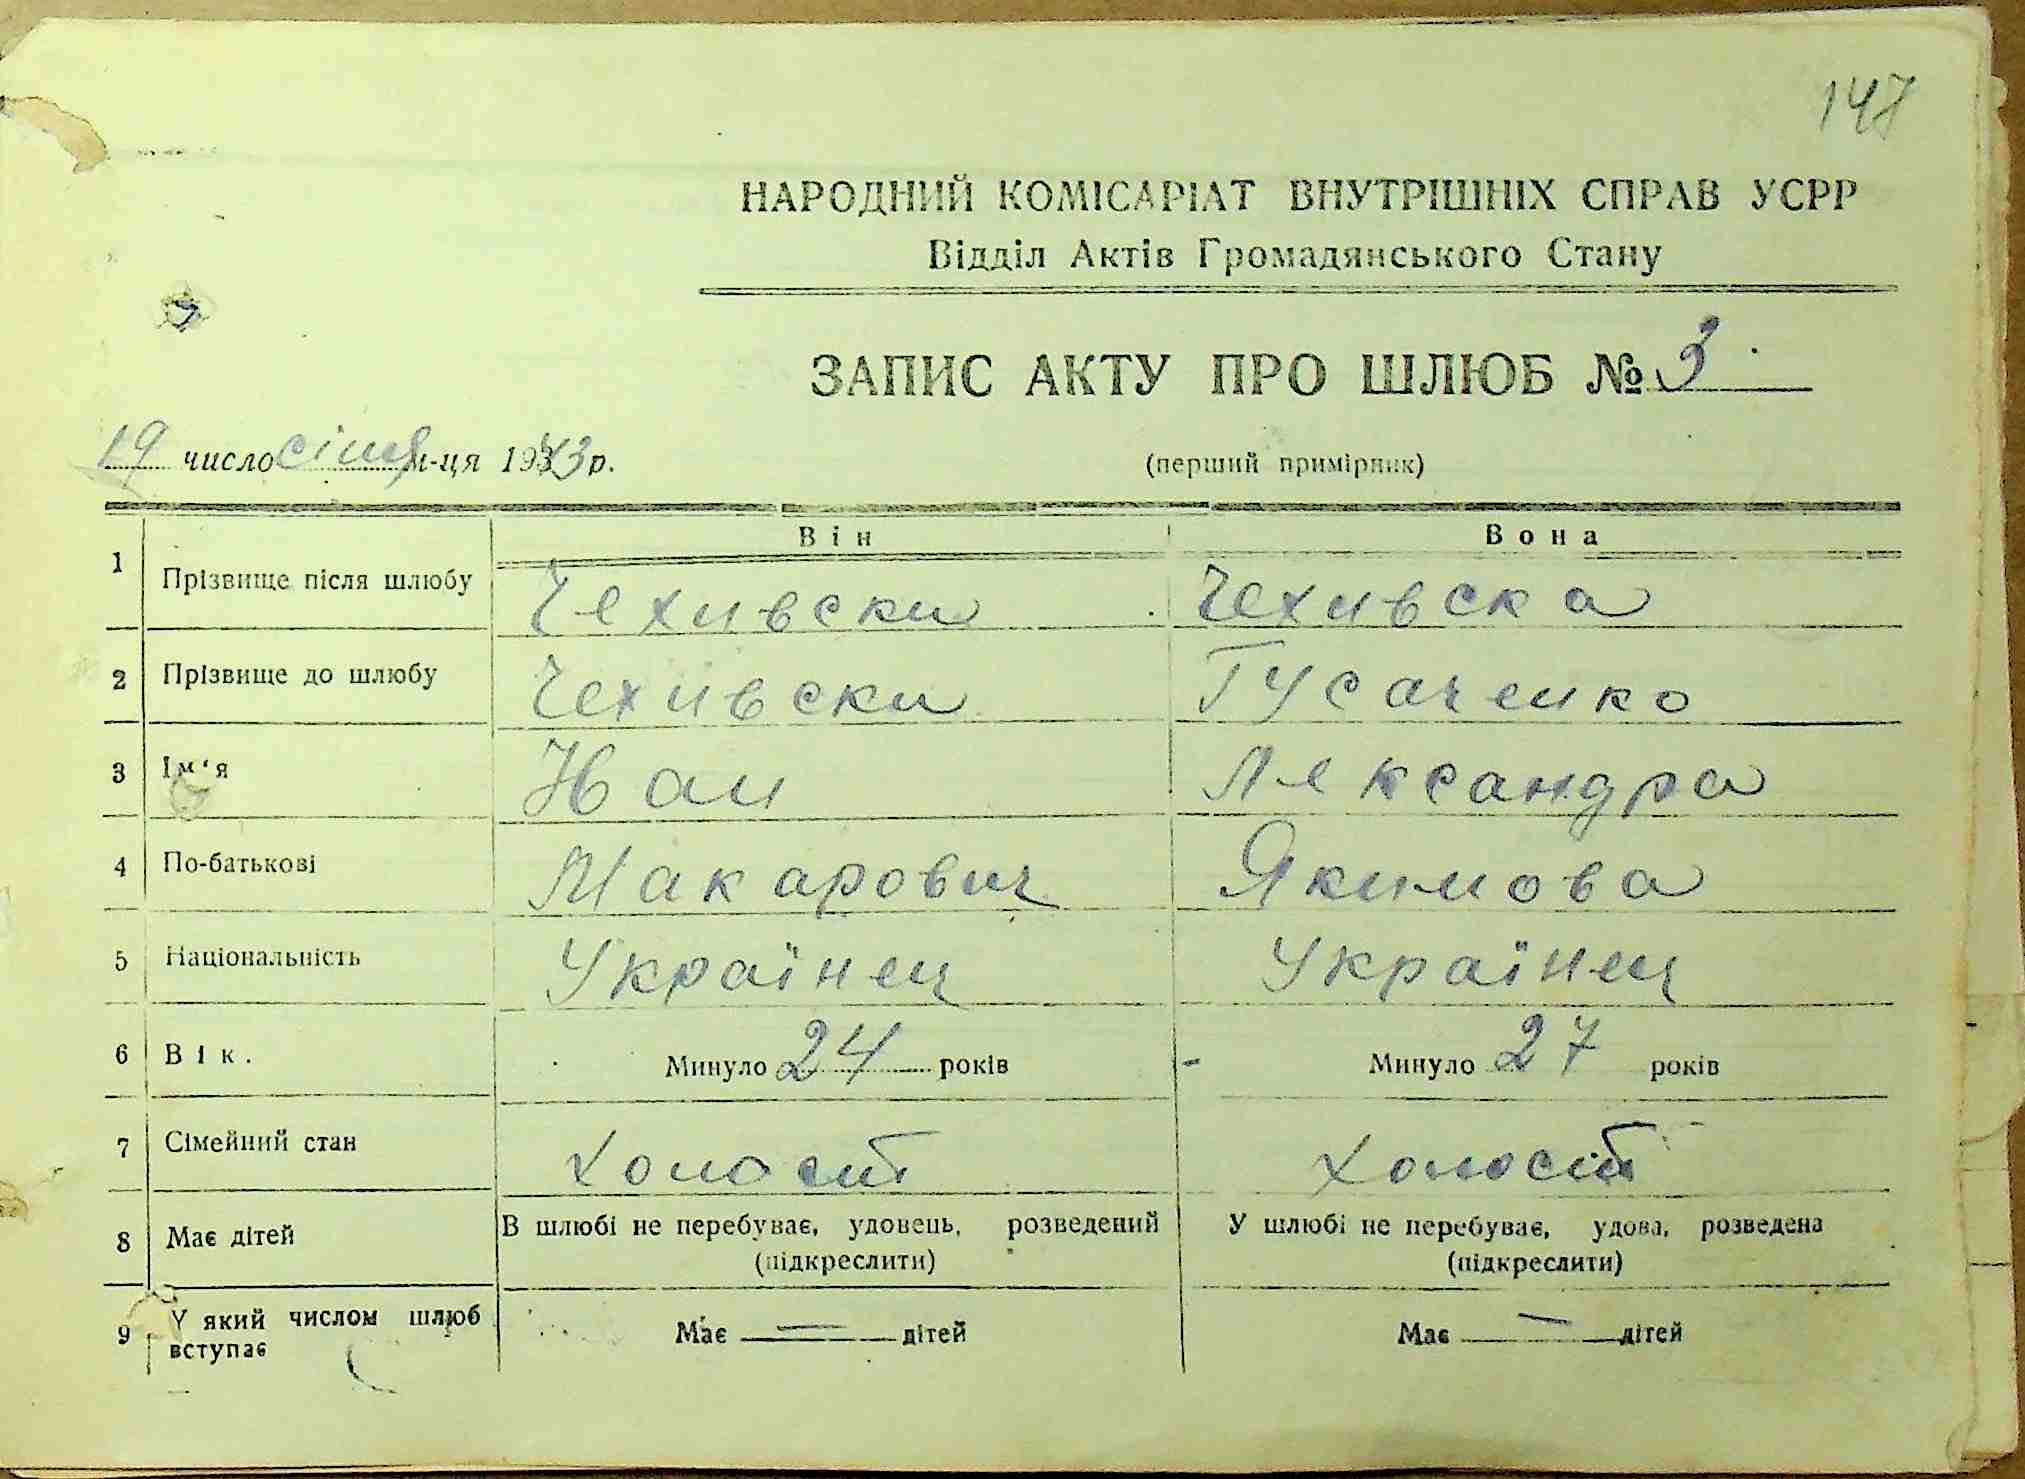 147
НАРОДНИЙ КОМІСАРІАТ ВНУТРІШНІХ СПРАВ УСРР
Відділ Актів Громадянського Стану
ЗАПИС АКТУ ПРО ШЛЮБ № 3
19 число січня м-ця 1943 р.
(перший примірник)
Він Вона
1 Прізвище після шлюбу Чехивски Чехивска
2 Прізвище до шлюбу Чехивски Гусаченко
3 Ім'я Иван Александра
4 По-батькові Макарович Якимова
5 Національність Українец Українец
6 Вік. Минуло 24 років Минуло 27 років
7 Сімейний стан холост холост
8 Має дітей В шлюбі не перебуває, удовець, розведений (підкреслити) У шлюбі не перебуває, удова, розведена (підкреслити)
9 У який числом шлюб вступає Має — дітей Має — дітей